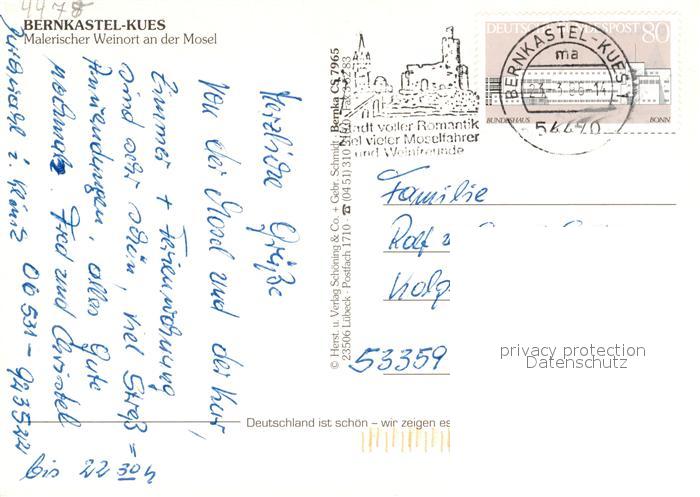 4478
BERNKASTEL-KUES
Malerischer Weinort an der Mosel
Herzliche Grüße
von der Mosel und der
Zimmer + Ferienwohnung
sind sehr schön, viel
Anwendungen, alles Gute
nochmals. Fred und Christel
06531-923522
bis 22 30 h
© Herst. u. Verlag Schöning & Co. + Gebr. Schmidt
23506 Lübeck · Postfach 1710 · ☎ (04 51) 310
Bernka CS 7965
Stadt voller Romantik
Ziel vieler Moselfahrer
und Weinfreunde
DEUTSCHE BUNDESPOST 80
BUNDESHAUS BONN
BERNKASTEL-KUES 1
ma
54470
Familie
Rolf
53359
privacy protection
Datenschutz
Deutschland ist schön – wir zeigen es